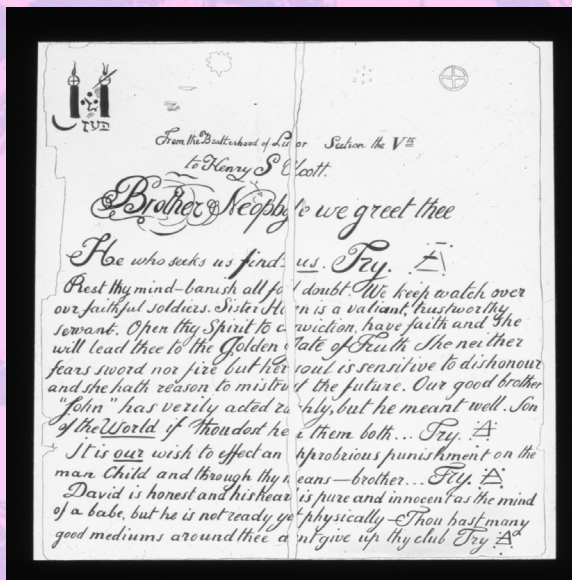 From the Brotherhood of Luxor Section the Vth
to Henry S Olcott.
Brother Neophyte we greet thee
He who seeks us finds us. Try.
Rest thy mind–banish all foul doubt. We keep watch over
our faithful soldiers. Sister Helen is a valiant, trustworthy
servant. Open thy Spirit to conviction, have faith and she
will lead thee to the Golden Gate of Truth. She neither
fears sword nor fire but her soul is sensitive to dishonour
and she hath reason to mistrust the future. Our good brother
"John" has verily acted rashly, but he meant well. Son
of the World if thou dost hear them both... Try.
It is our wish to effect an opprobrious punishment on the
man Child and through thy means–brother... Try.
David is honest and his heart is pure and innocent as the mind
of a babe, but he is not ready yet physically–Thou hast many
good mediums around thee dont give up thy club Try